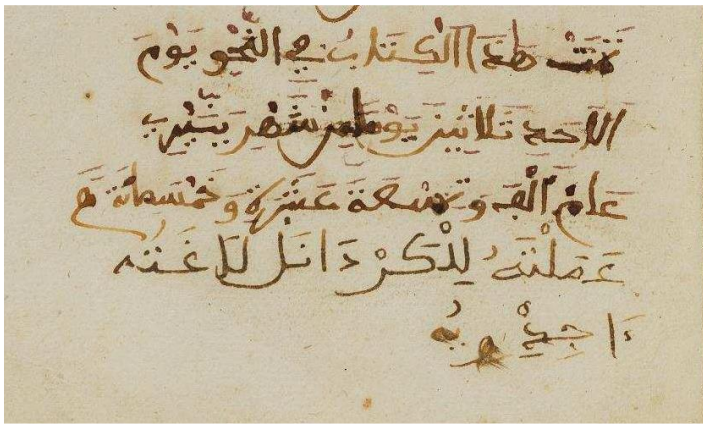 تمت هذا الكتاب في النحو يوم
الاحد ثلاثين يوما من شهر
عام الف وتسعة عشرة وخمسمائة
عملته لذكر دانل